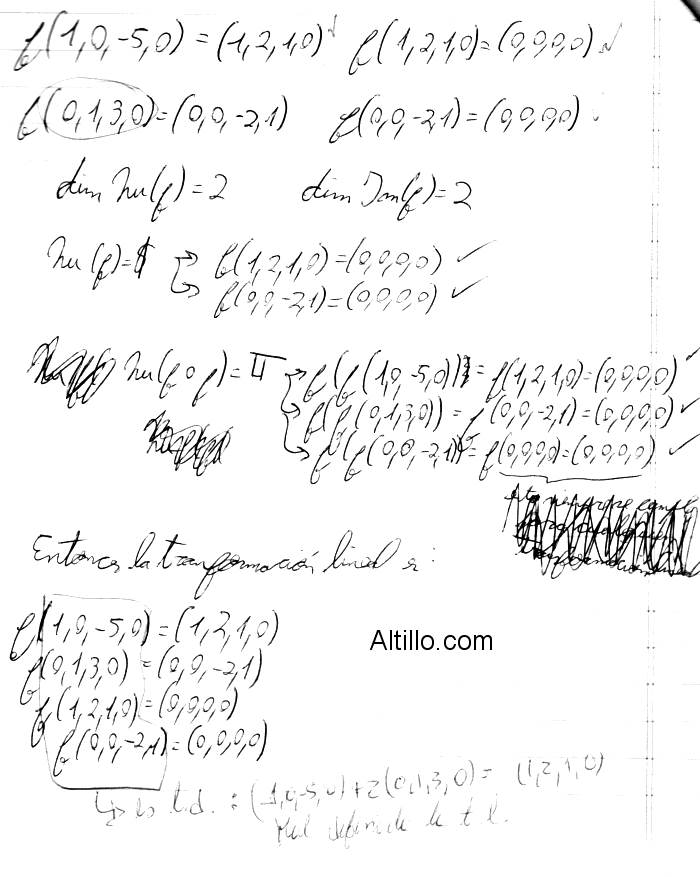 f(1,0,-5,0) = (1,2,1,0) √ f(1,2,1,0)=(0,0,0,0) √
f(0,1,3,0)=(0,0,-2,1) f(0,0,-2,1)=(0,0,0,0)
dim Nu(f)=2 dim Im(f)=2
Nu(f)= → f(1,2,1,0)=(0,0,0,0) ✓
→ f(0,0,-2,1)=(0,0,0,0) ✓
Nu(f∘f)= → f(f(1,0,-5,0)) = f(1,2,1,0)=(0,0,0,0) ✓
→ f(f(0,1,3,0)) = f(0,0,-2,1)=(0,0,0,0) ✓
→ f(f(0,0,-2,1)) = f(0,0,0,0)=(0,0,0,0) ✓
Entonces la transformación lineal es:
f(1,0,-5,0)=(1,2,1,0)
Altillo.com
f(0,1,3,0)=(0,0,-2,1)
f(1,2,1,0)=(0,0,0,0)
f(0,0,-2,1)=(0,0,0,0)
↳ es l.d. : (1,0,-5,0)+2(0,1,3,0)= (1,2,1,0)
Mal definida la t.l.